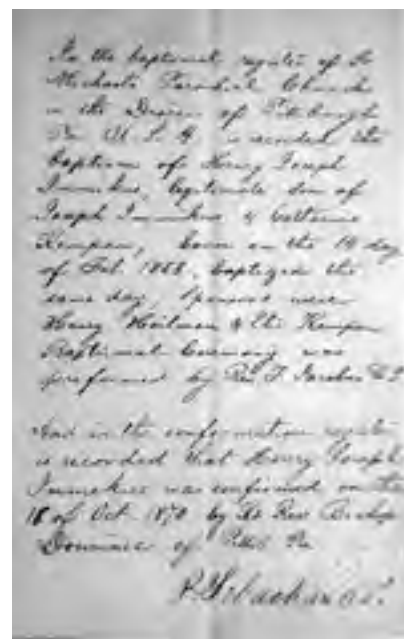 In the baptismal register of St
Michaels Parochial Church
in the Diocese of Pittsburgh
Pa. U. S. A. is recorded the
baptism of Henry Joseph
Immekus, legitimate son of
Joseph Immekus & Catharine
Kempen, born on the 14 day
of Feb. 1858, baptized the
same day, Sponsors were
Henry & Kempen
Baptismal Ceremony was
preformed by Rev
And in the confirmation register
is recorded that Henry Joseph
Immekus was confirmed on the
18 of Oct. 1870 by Rt Rev. Bishop
Domenec of Pitts Pa